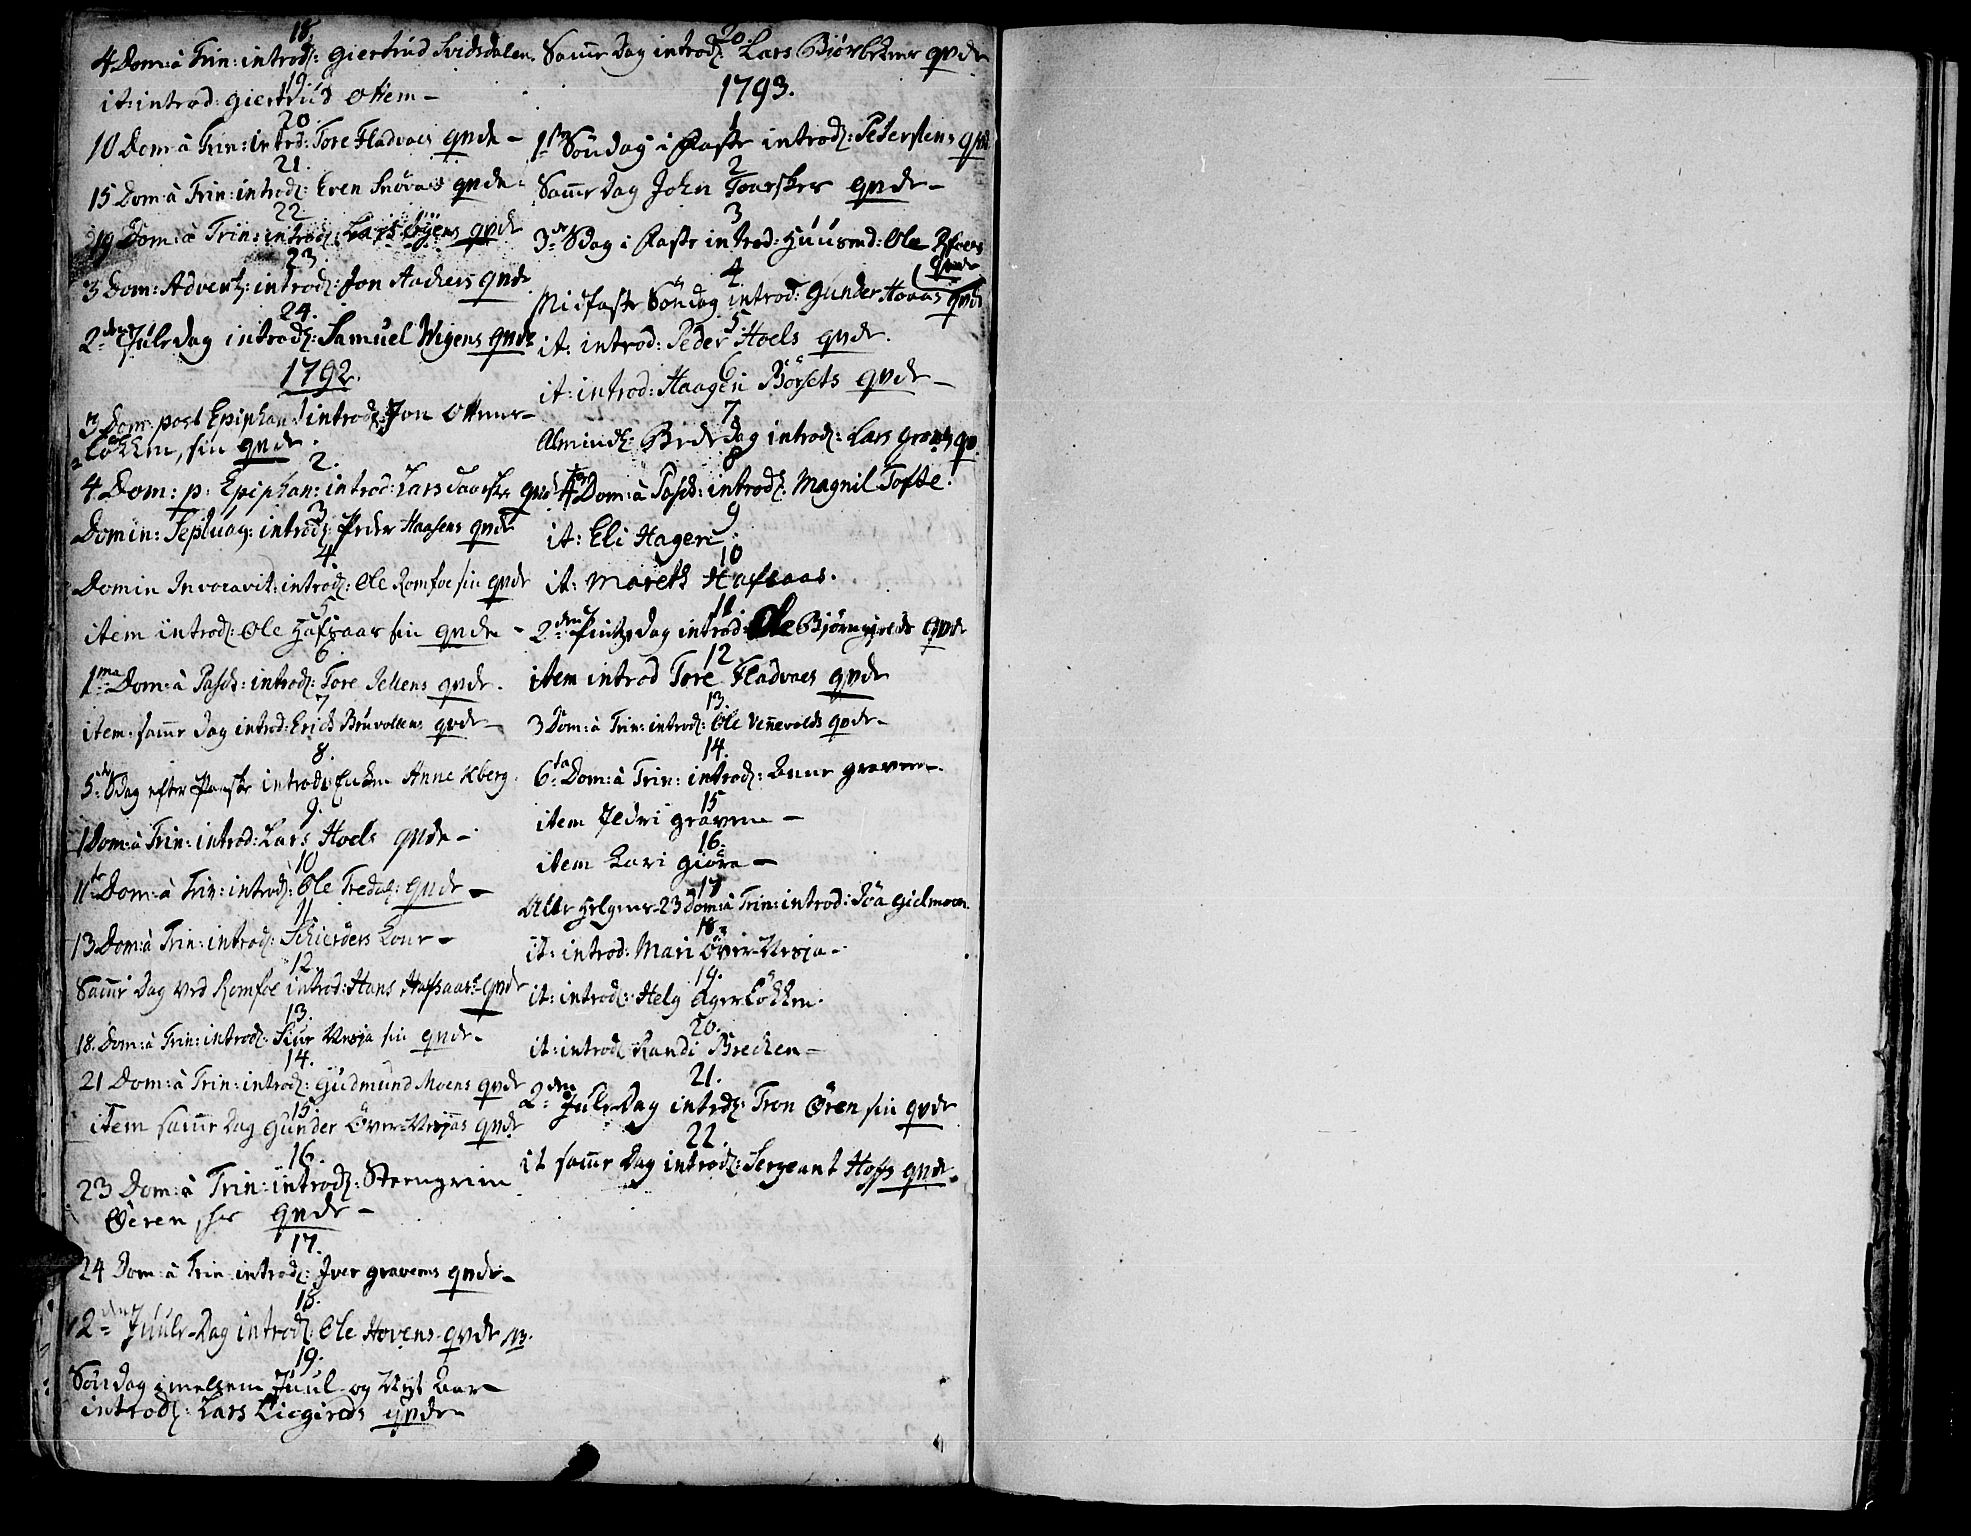 18.
4 Dom: à Trin: introd: Giertrud Svidsdalen.
19
it: introd: Giertrud Ottem –
20.
10 Dom: à Trin: introd: Tore Fladvaes qvde –
21.
15 Dom: à Trin: introd: Even Snøvaes qvde.
22
19 Dom: à Trin: introd: Lars Øyens qvde
23.
3 Dom: Advent: introd: Jon Aachers qvde
24.
2den Juledag introd: Samuel Wigens qvde
1792.
3 Dom: post Epiphan: introd: Jon Ottem-
Løkken, sin qvde.
2.
4 Dom: p: Epiphan: introd: Lars Taarske qvde
3
Domin: Septuag: introd: Peder Haasens qvde
4.
Domin Invocavit: introd: Ole Romfoe sin qvde
5
item introd: Ole Hafsaas sin qvde –
6.
1ma Dom: à Pasch: introd: Tore Jellens qvde.
7
item samme Dag introd: Erich Bruvollens qvde –
8.
5te Sdag efter Paaske introd: Enken Anne Kberg.
9.
1 Dom: à Trin: introd: Lars Hoels qvde –
10
11te Dom: à Trin: introd: Ole Tredal: qvde –
11
13 Dom: à Trin: introd: Schierders Kone –
12
Samme Dag ved Romfoe introd: Hans Hafsaas qvde
13.
18. Dom: à Trin: introd: Siur Versja sin qvde –
14.
21 Dom: à Trin: introd: Gudmund Moens qvde
15
item samme Dag Gunder Över-Versjas qvde
16.
23 Dom: à Trin: introd: Steengrim
Øeren, qvde –
17.
24 Dom: à Trin introd: Iver Gravems qvde –
18.
2den Juule-Dag introd: Ole Hovens qvde
19.
Søndag imellem Juul og Nyt Aar –
introd: Lars qvde –
20.
Samme Dag introd: Lars qvde
1793.
1
1ste Søndag i Faste introd: Petersens qvde
2
Samme Dag John Taaskes qvde –
3
3de Sdag i Faste introd: Huusmd: Ole
qvde
4
Midfaste Søndag introd: Gunder Hovas qvde
5.
it: introd: Peder Hoels qvde.
6
it: introd: Haagen Børsets qvde –
7.
Almindl: Bededag introd: Lars qv.
8
4 Dom: à Pasch: introd: Magnil Tofte.
9
it: Eli Hagen:
10
it: Mareth Hafsaas.
11.
2den Pintzdag introd: Ole qvde
12.
item introd Tore Fladvaes qvde
13.
3 Dom: à Trin: introd: Ole Vennevolds qvde –
14.
6ta Dom: à Trin: introd: Anne Gravem –
15
item Ildri Gravem –
16.
item Kari Giøra –
17
Alle Helgens 23 Dom: à Trin: introd: Röa Gielmoen
18.
it: introd: Mari Över-Versja –
19.
it: introd: Helg AgerLøkken.
20.
it: introd: Randi Brechen –
21.
2den Jule-Dag introd: Tron Ören sin qvde
22.
it samme Dag introd: Sergeant Hoffs qvde.